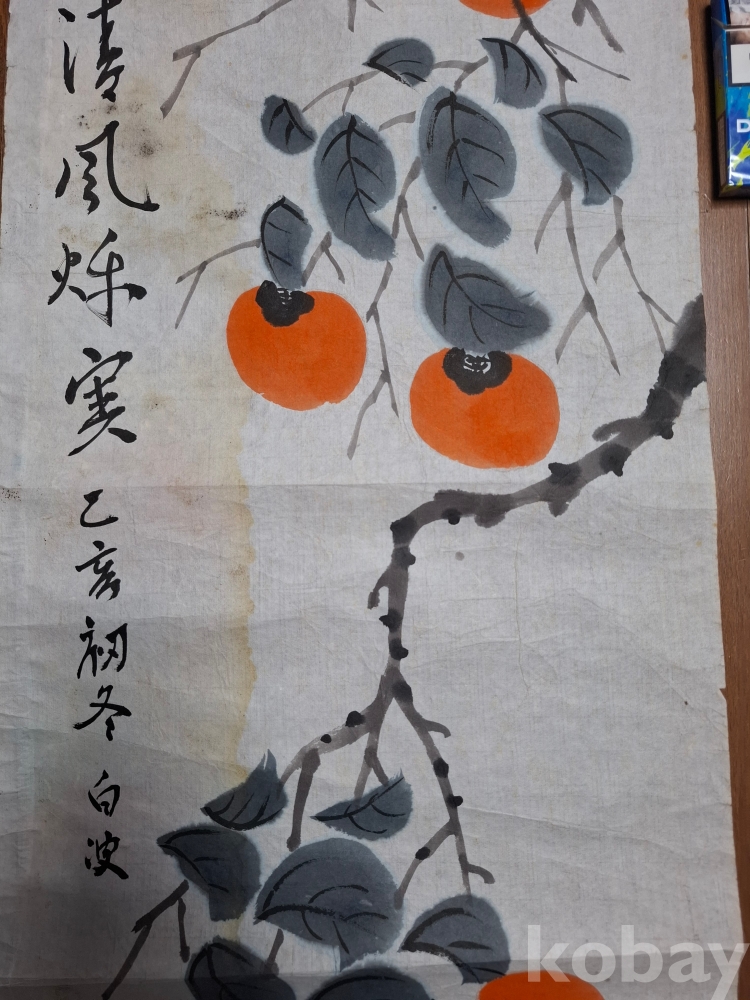 清風烁実 乙亥初冬 白波
D
kobay